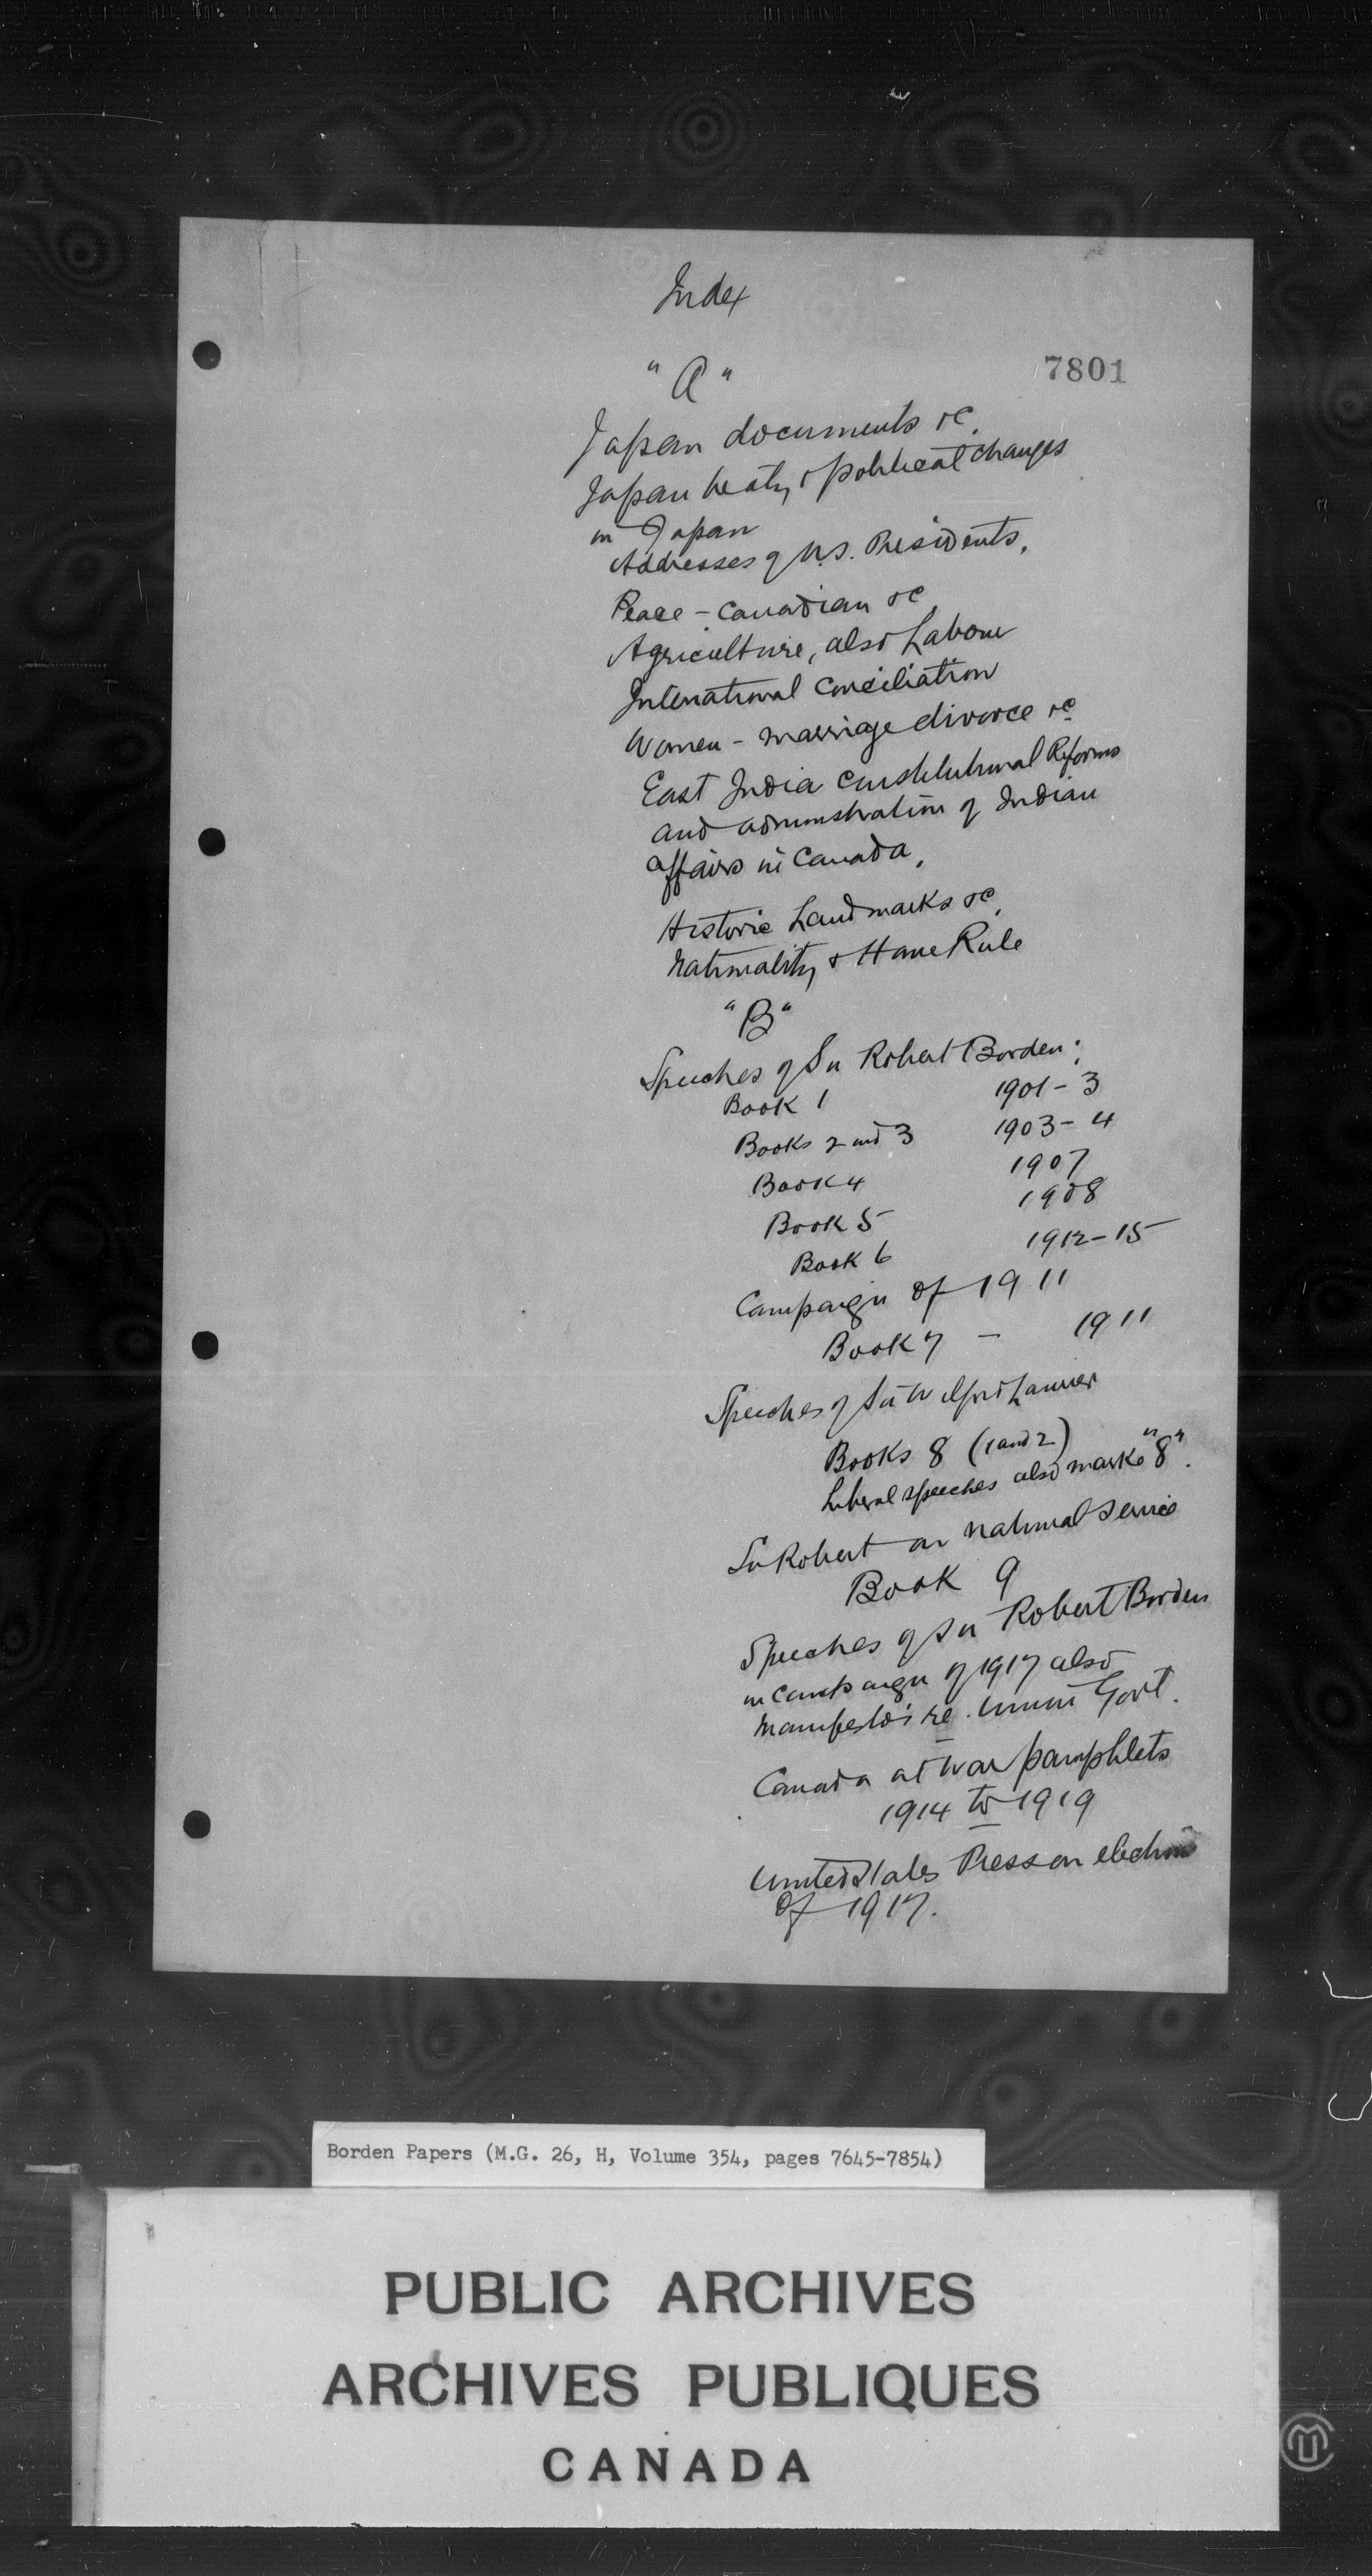 Index
"A"
7801
Japan documents &c.
Japan treaty & political changes
in Japan
Addresses of U.S. Presidents.
Peace - Canadian &c
Agriculture, also Labour
International Conciliation
Women - marriage divorce &c
East India Constitutional Reforms
and administration of Indian
affairs in Canada.
Historic Landmarks &c.
Nationality & Home Rule
"B"
Speeches of Sir Robert Borden:
Book 1 1901-3
Books 2 and 3 1903-4
Book 4 1907
Book 5 1908
Book 6 1912-15
Campaign of 1911
Book 7 - 1911
Speeches of Sir Wilfrid Laurier
Books 8 (1 and 2)
Liberal speeches also marked "8".
Sir Robert on National Service
Book 9
Speeches of Sir Robert Borden
in Campaign of 1917 also
Manifesto's re. Union Govt.
Canada at War pamphlets
1914 to 1919
United States Press on elections
of 1917.
Borden Papers (M.G. 26, H, Volume 354, pages 7645-7854)
PUBLIC ARCHIVES
ARCHIVES PUBLIQUES
CANADA